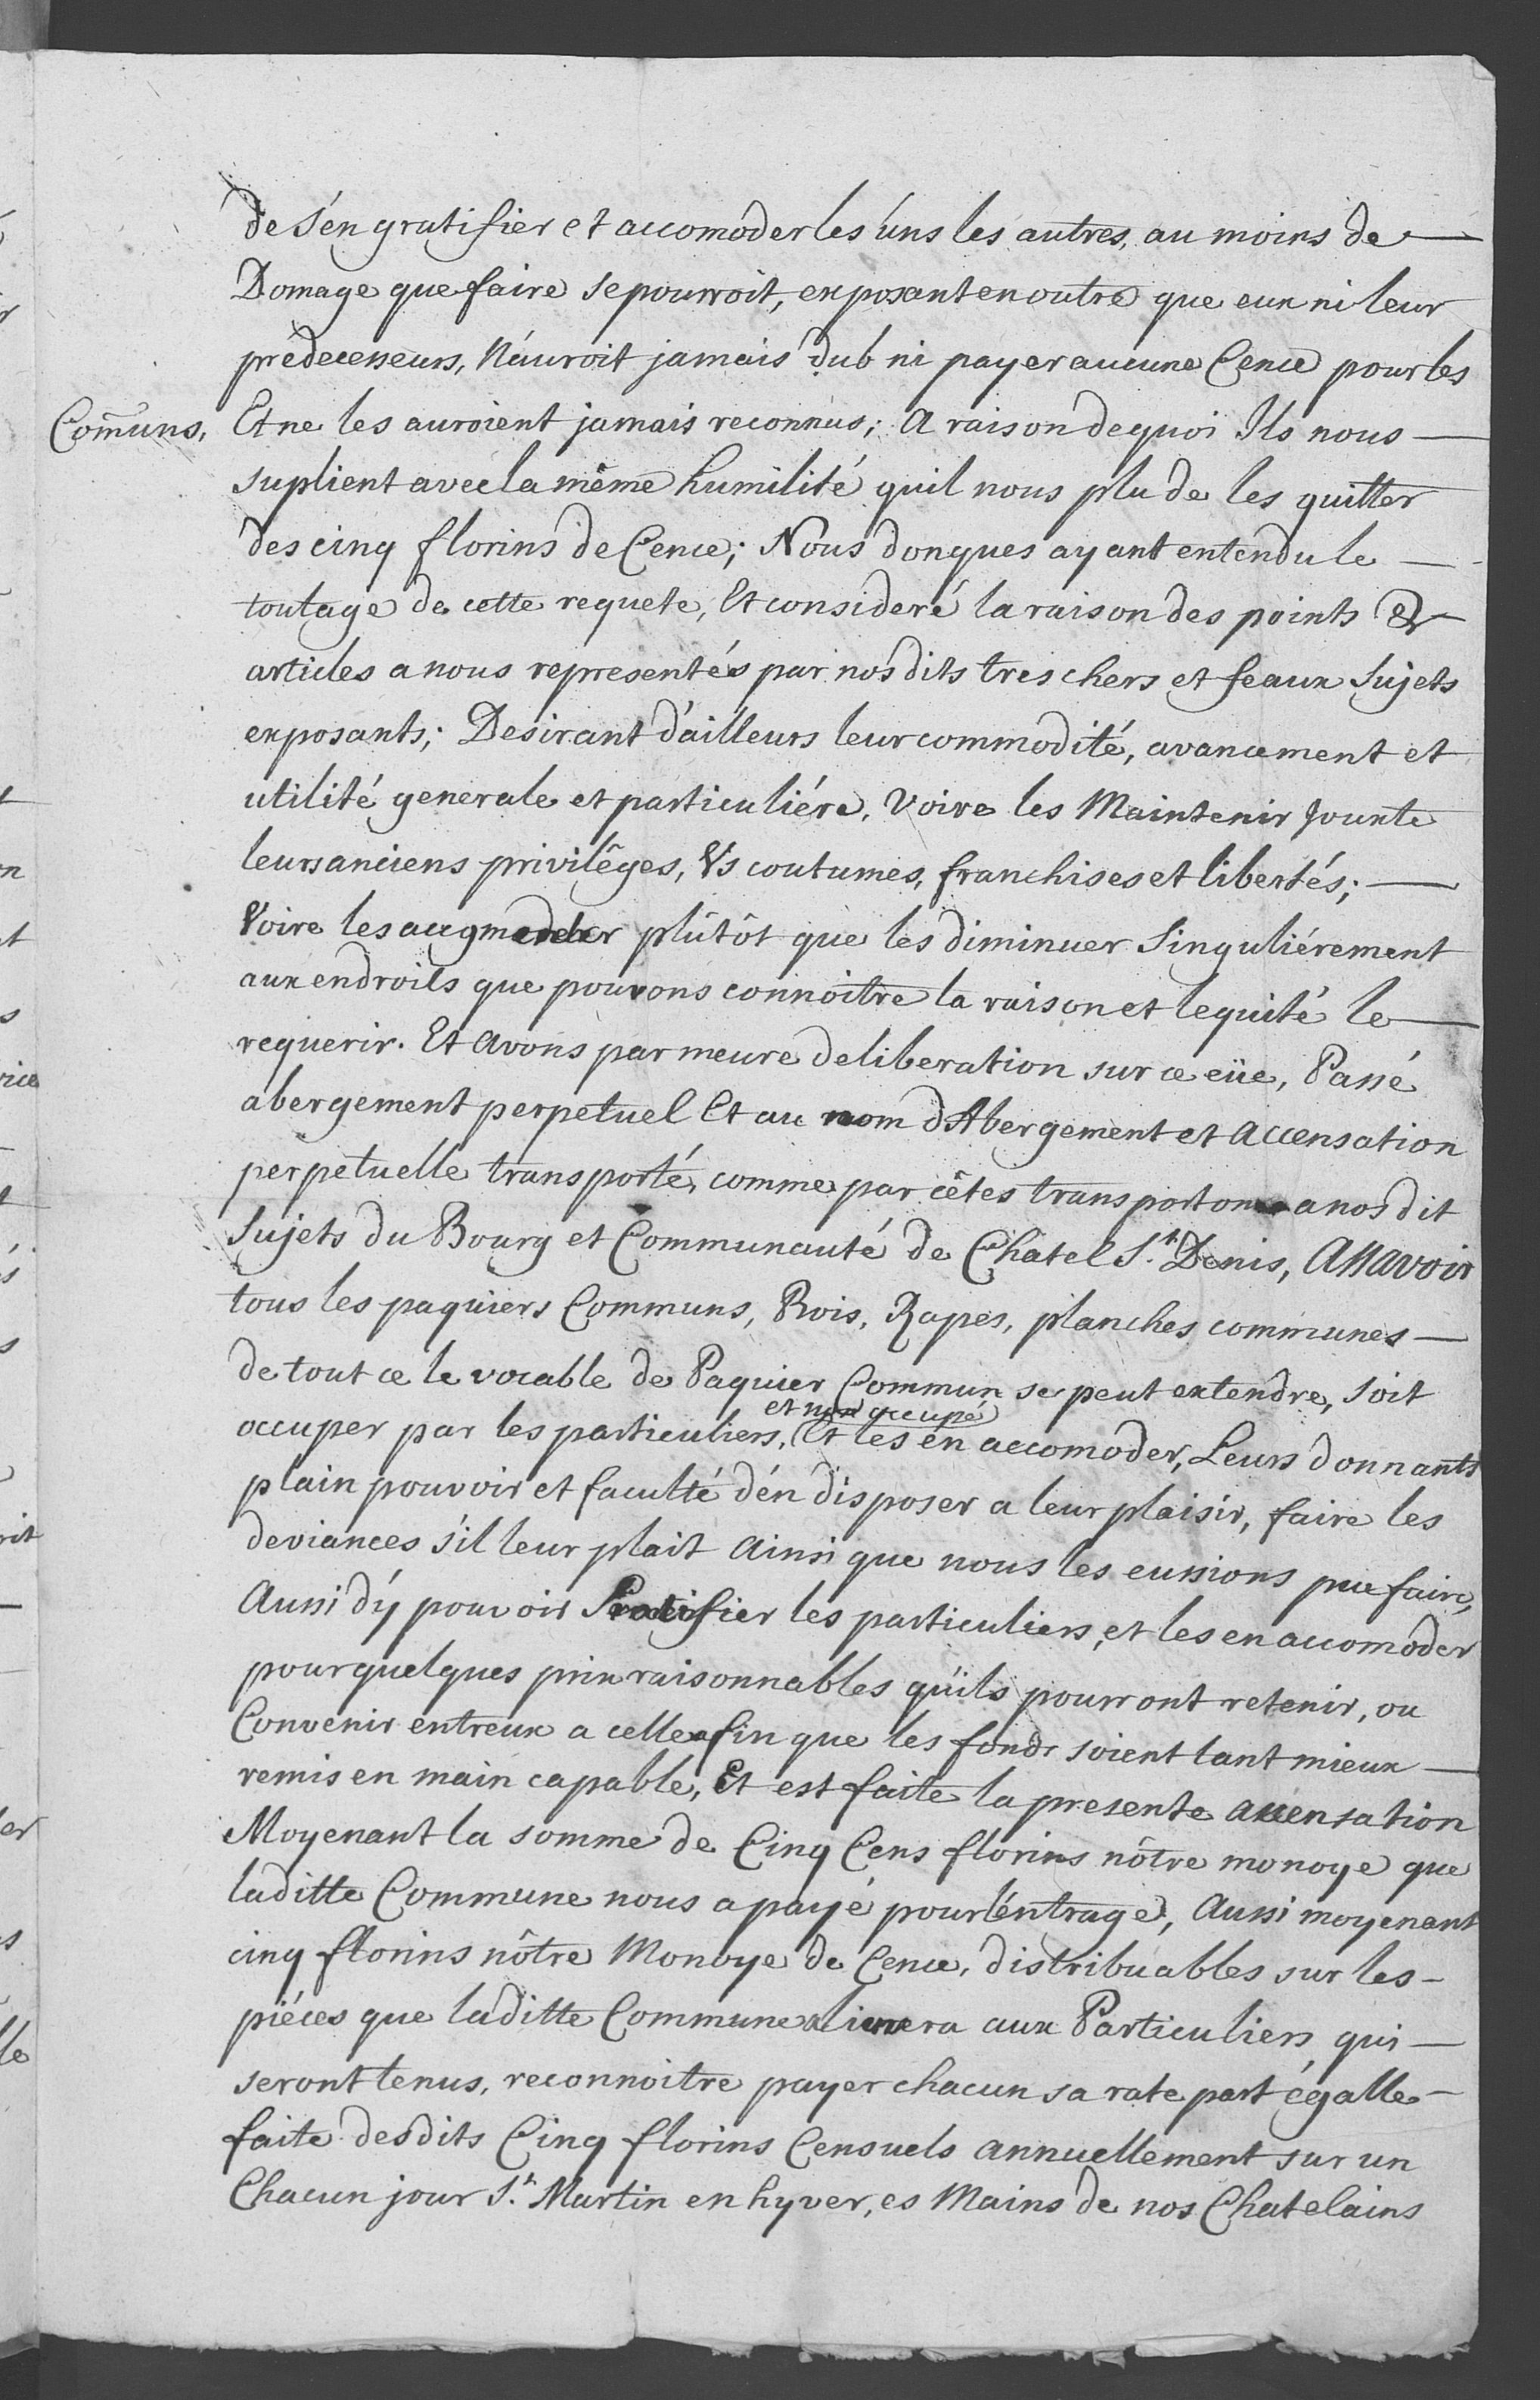 de s'en gratifier et accomoder les úns les autres, au moins de —
Domage que faire se pourroit, exposant en outre que eux ni leur
prédecesseurs, N'auroit jamais dub ni payer aucune Cence pour les
Com̃uns, Et ne les auroient jamais reconnus; A raison de quoi Ils nous —
suplient avec la même humilité quil nous plu de les quitter
des cinq florins de Cence; Nous donques ayant entendu le —
toutage de cette requete, Et consideré la raison des points &
articles a nous representés par nosdits tres chers et feaux Sujets
exposants; Desirant d'ailleurs leur commodité, avancement et
utilité generale et particuliére, Voire les Maintenir Jouxte
leurs anciens privilêges, Vs coutumes, franchises et libertés; —
Voire les augmenter plûtôt que les diminuer Singuliérement
aux endroits que pouvons connoitre la raison et lequité le —
requerir. Et Avons par meure deliberation sur ce eüe, Passé
abergement perpetuel Et au nom d'Abergement et Accensation
perpetuelle transporté, comme par cêtes transportons a nosdit
Sujets du Bourg et Communauté de Chatel S.t Denis, Assavoir
tous les paquiers Communs, Bois, Rapes, planches communes —
de tout ce le vocable de Paquier Commun se peut extendre, soit
et non occupé
occuper par les particuliers, Et les en accomoder, Leurs donnants
plain pouvoir et faculté d'en disposer a leur plaisir, faire les
deviances s'il leur plait Ainsi que nous les eussions pu faire,
Aussi d'y pouvoir les particuliers, et les en accomoder
pour quelques prix raisonnables qu'ils pourront retenir, ou
Convenir entreux a celle fin que les fonds soient tant mieux —
remis en main capable, Et est faite la presente accensation
Moyenant la somme de Cinq Cens florins nôtre monoye que
laditte Commune nous a payé pour l'entrage, Aussi moyenant
cinq florins nôtre Monoye de Cence, distribuables sur les —
piéces que laditte Commune alienera aux Particuliers, qui —
seront tenus, reconnoitre payer chacun sa rate part égalle —
faite desdits Cinq florins Censuels annuellement sur un
Chacun jour S.t Martin en hyver, es Mains de nos Chatelains